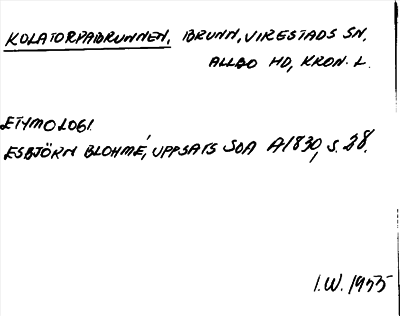 KOLATORPABRUNNEN, BRUNN, VIRESTADS SN,
ALLBO HD, KRON. L.
ETYMOLOGI.
ESBJÖRN BLOHMÉ, UPPSATS SOA A1830, S. 28.
I.W. 1955